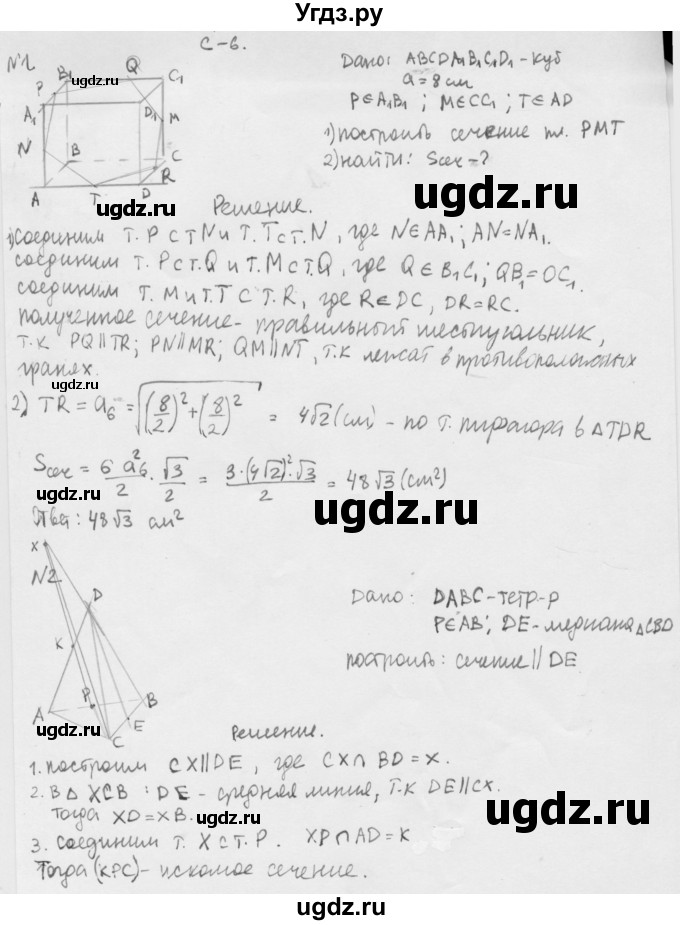 Угдз.ру
С-6.
№1
Дано: ABCDA₁B₁C₁D₁ - куб
a = 8 см
P∈A₁B₁ ; M∈CC₁ ; T∈AD
1) построить сечение пл. PMT
2) найти: Sсеч = ?
B₁ Q C₁
P
A₁ D₁ M
N B C
R
A T D
ugdz.ru
ugdz.ru
ugdz.ru
Решение.
1) Соединим т. P с т N и т. T с т. N , где N∈AA₁ ; AN=NA₁.
соединим т. P с т. Q и т. M с т. Q , где Q∈B₁C₁ ; QB₁=QC₁
соединим т. M и т. T с т. R , где R∈DC, DR=RC.
полученное сечение - правильный шестиугольник,
т.к PQ∥TR; PN∥MR; QM∥NT , т.к лежат в противоположных
гранях.
ugdz.ru
ugdz.ru
2) TR = a₆ = √((8/2)² + (8/2)²) = 4√2 (см) - по т. пифагора в △TDR
ugdz.ru
Sсеч = 6a²₆/2 · √3/2 = 3·(4√2)²·√3/2 = 48√3 (см²)
ugdz.ru
ugdz.ru
Ответ: 48√3 см²
X
№2
D
K
P B
A E
C
ugdz.ru
ugdz.ru
Дано: DABC - тетр-р
P∈AB; DE - медиана △CBD
построить: сечение ∥ DE
ugdz.ru
Решение.
1. построим CX∥DE , где CX∩BD=X.
2. В △ XCB : DE - средняя линия, т.к DE∥CX.
Тогда XD=XB.
ugdz.ru
ugdz.ru
3. соединим т. X с т. P. XP∩AD=K
Тогда (KPC) - искомое сечение.
ugdz.ru
ugdz.ru